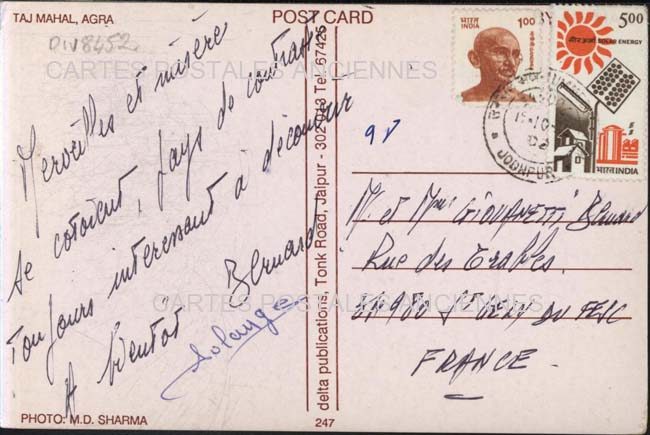 TAJ MAHAL, AGRA
POST CARD
DIV8452
CARTES POSTALES ANCIENNES
Merveilles et misère
se cotoient, pays de contraste
Toujours interessant à découvrir
A bientôt Bernard
Solange
delta publications, Tonk Road, Jaipur - 302 018 Tel. 67425
भारत
INDIA
1.00
5.00
सौर ऊर्जा SOLAR ENERGY
भारत INDIA
JODHPUR
9V
M. et Mme GIOVANETTI Bernard
Rue des Erables
St du
FRANCE.
CARTES POSTALES ANCIENNES
PHOTO: M.D. SHARMA
247